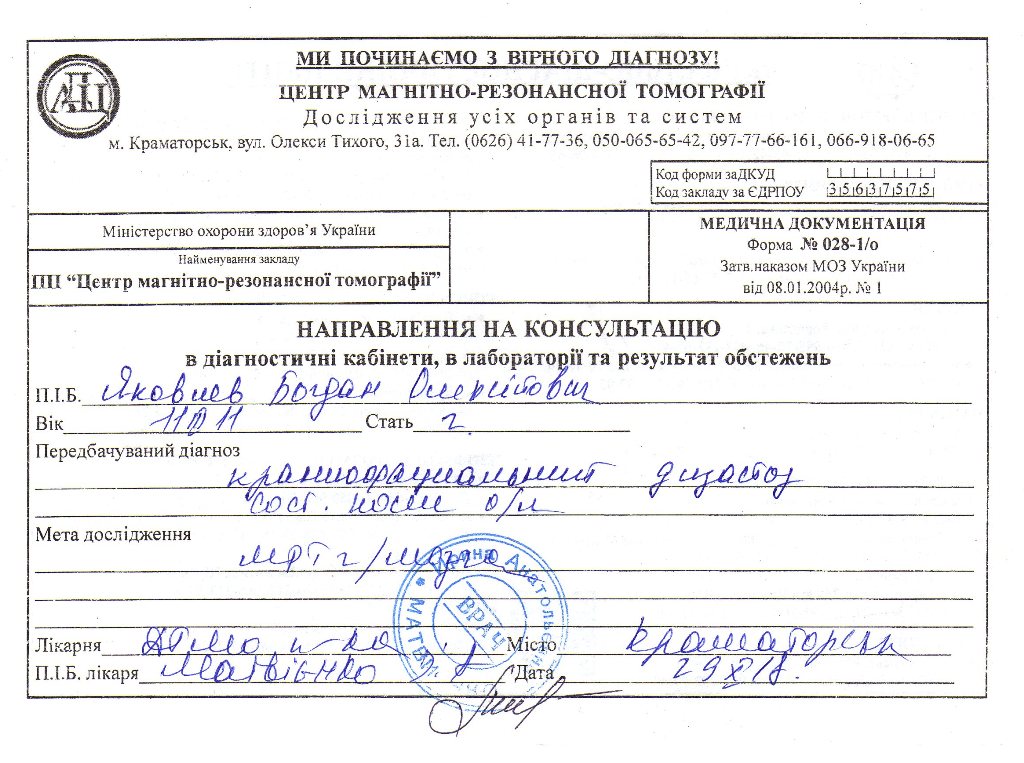 МИ ПОЧИНАЄМО З ВІРНОГО ДІАГНОЗУ!
АДЦ
ЦЕНТР МАГНІТНО-РЕЗОНАНСНОЇ ТОМОГРАФІЇ
Дослідження усіх органів та систем
м. Краматорськ, вул. Олекси Тихого, 31а. Тел. (0626) 41-77-36, 050-065-65-42, 097-77-66-161, 066-918-06-65
Код форми заДКУД
Код закладу за ЄДРПОУ 35637575
Міністерство охорони здоров’я України
Найменування закладу
ПП “Центр магнітно-резонансної томографії”
МЕДИЧНА ДОКУМЕНТАЦІЯ
Форма № 028-1/о
Затв.наказом МОЗ України
від 08.01.2004р. № 1
НАПРАВЛЕННЯ НА КОНСУЛЬТАЦІЮ
в діагностичні кабінети, в лабораторії та результат обстежень
П.І.Б. Яковлев Богдан
Вік Стать
Передбачуваний діагноз
краниофациальний дизостоз
сост. после о/л
Мета дослідження
МРТ г/мозга
Ірина Анатольєвна
ВРАЧ
Лікарня Місто Краматорськ
П.І.Б. лікаря Матвієнко Дата 29 XI